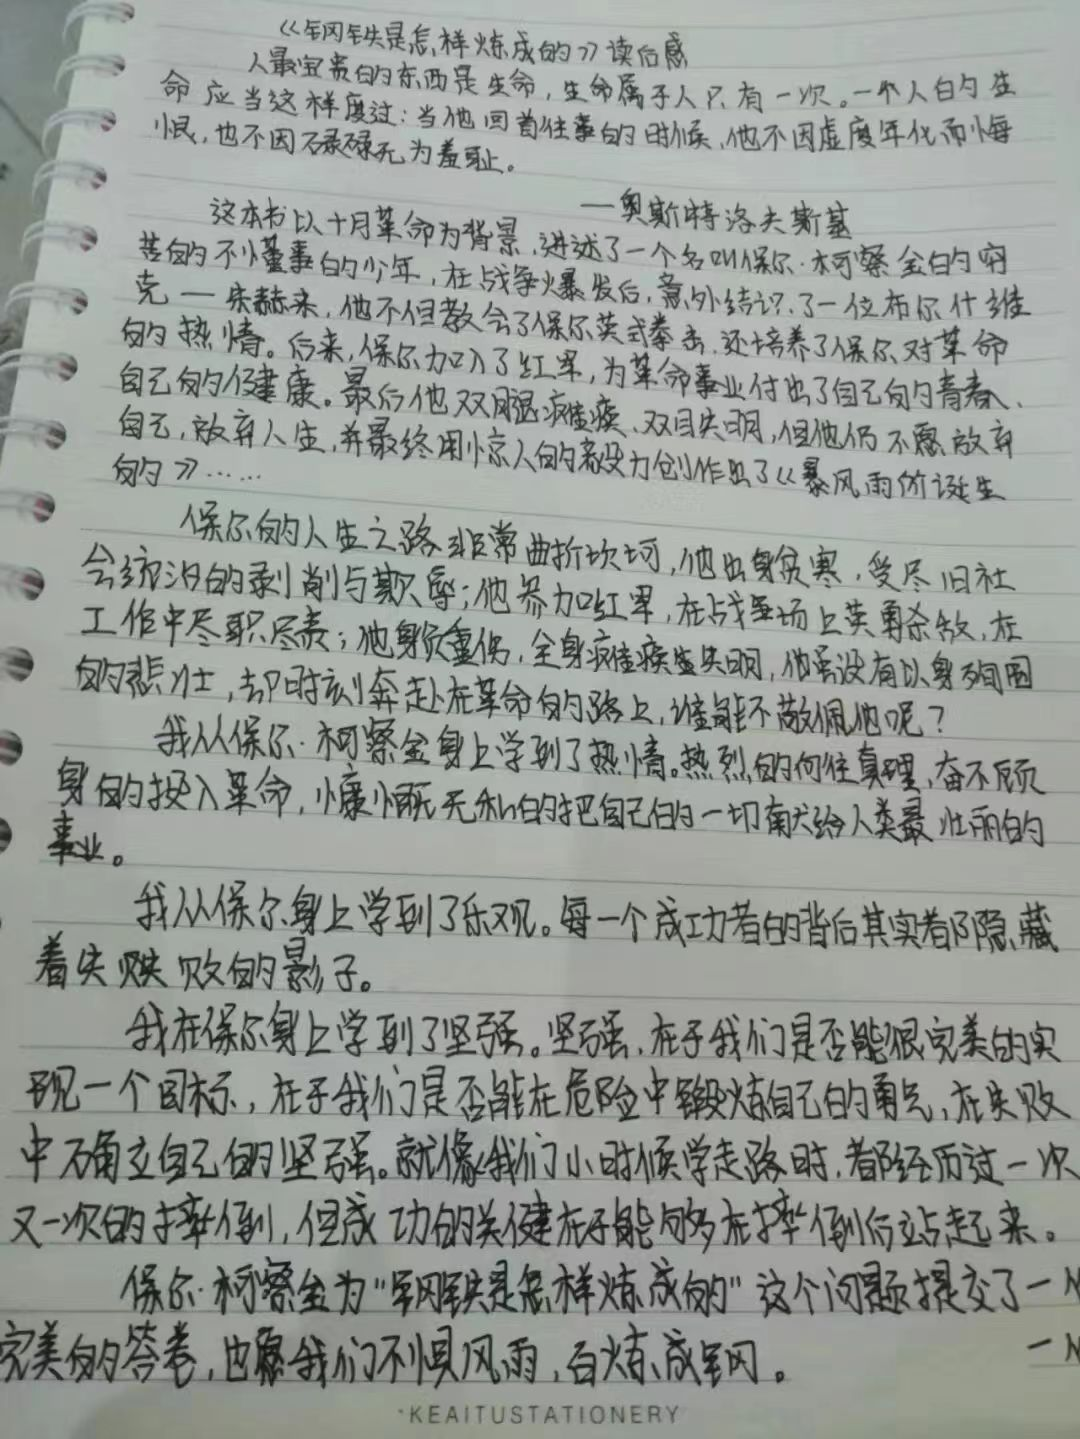 《钢铁是怎样炼成的》读后感
人最宝贵的东西是生命，生命属于人只有一次。一个人的生
命应当这样度过：当他回首往事的时候，他不因虚度年化而悔
恨，也不因碌碌无为羞耻。
—奥斯特洛夫斯基
这本书以十月革命为背景，讲述了一个名叫保尔·柯察金的穷
苦的不懂事的少年，在战争爆发后，意外结识了一位布尔什维
克—朱赫来，他不但教会了保尔英式拳击，还培养了保尔对革命
的热情。后来，保尔加入了红军，为革命事业付出了自己的青春、
自己的健康。最后他双腿瘫痪、双目失明，但他仍不愿放弃
自己，放弃人生，并最终用惊人的毅力创作出了《暴风雨所诞生
的》……
保尔的人生之路非常曲折坎坷，他出身贫寒，受尽旧社
会统治的剥削与欺辱；他参加红军，在战场上英勇杀敌，在
工作中尽职尽责；他身负重伤，全身瘫痪失明，他虽没有以身殉国
的悲壮，却时刻奔赴在革命的路上，谁能不敬佩他呢？
我从保尔·柯察金身上学到了热情。热烈的向往真理，奋不顾
身的投入革命，慷慨无私的把自己的一切献给人类最壮丽的
事业。
我从保尔身上学到了乐观。每一个成功者的背后其实都隐藏
着失败的影子。
我在保尔身上学到了坚强。坚强，在于我们是否能很完美的实
现一个目标，在于我们是否能在危险中锻炼自己的勇气，在失败
中确立自己的坚强。就像我们小时候学走路时，都经历过一次
又一次的摔倒，但成功的关健在于能够在摔倒后站起来。
保尔·柯察金为“钢铁是怎样炼成的”这个问题提交了一
完美的答卷，也愿我们不惧风雨，百炼成钢。
KEAITUSTATIONERY